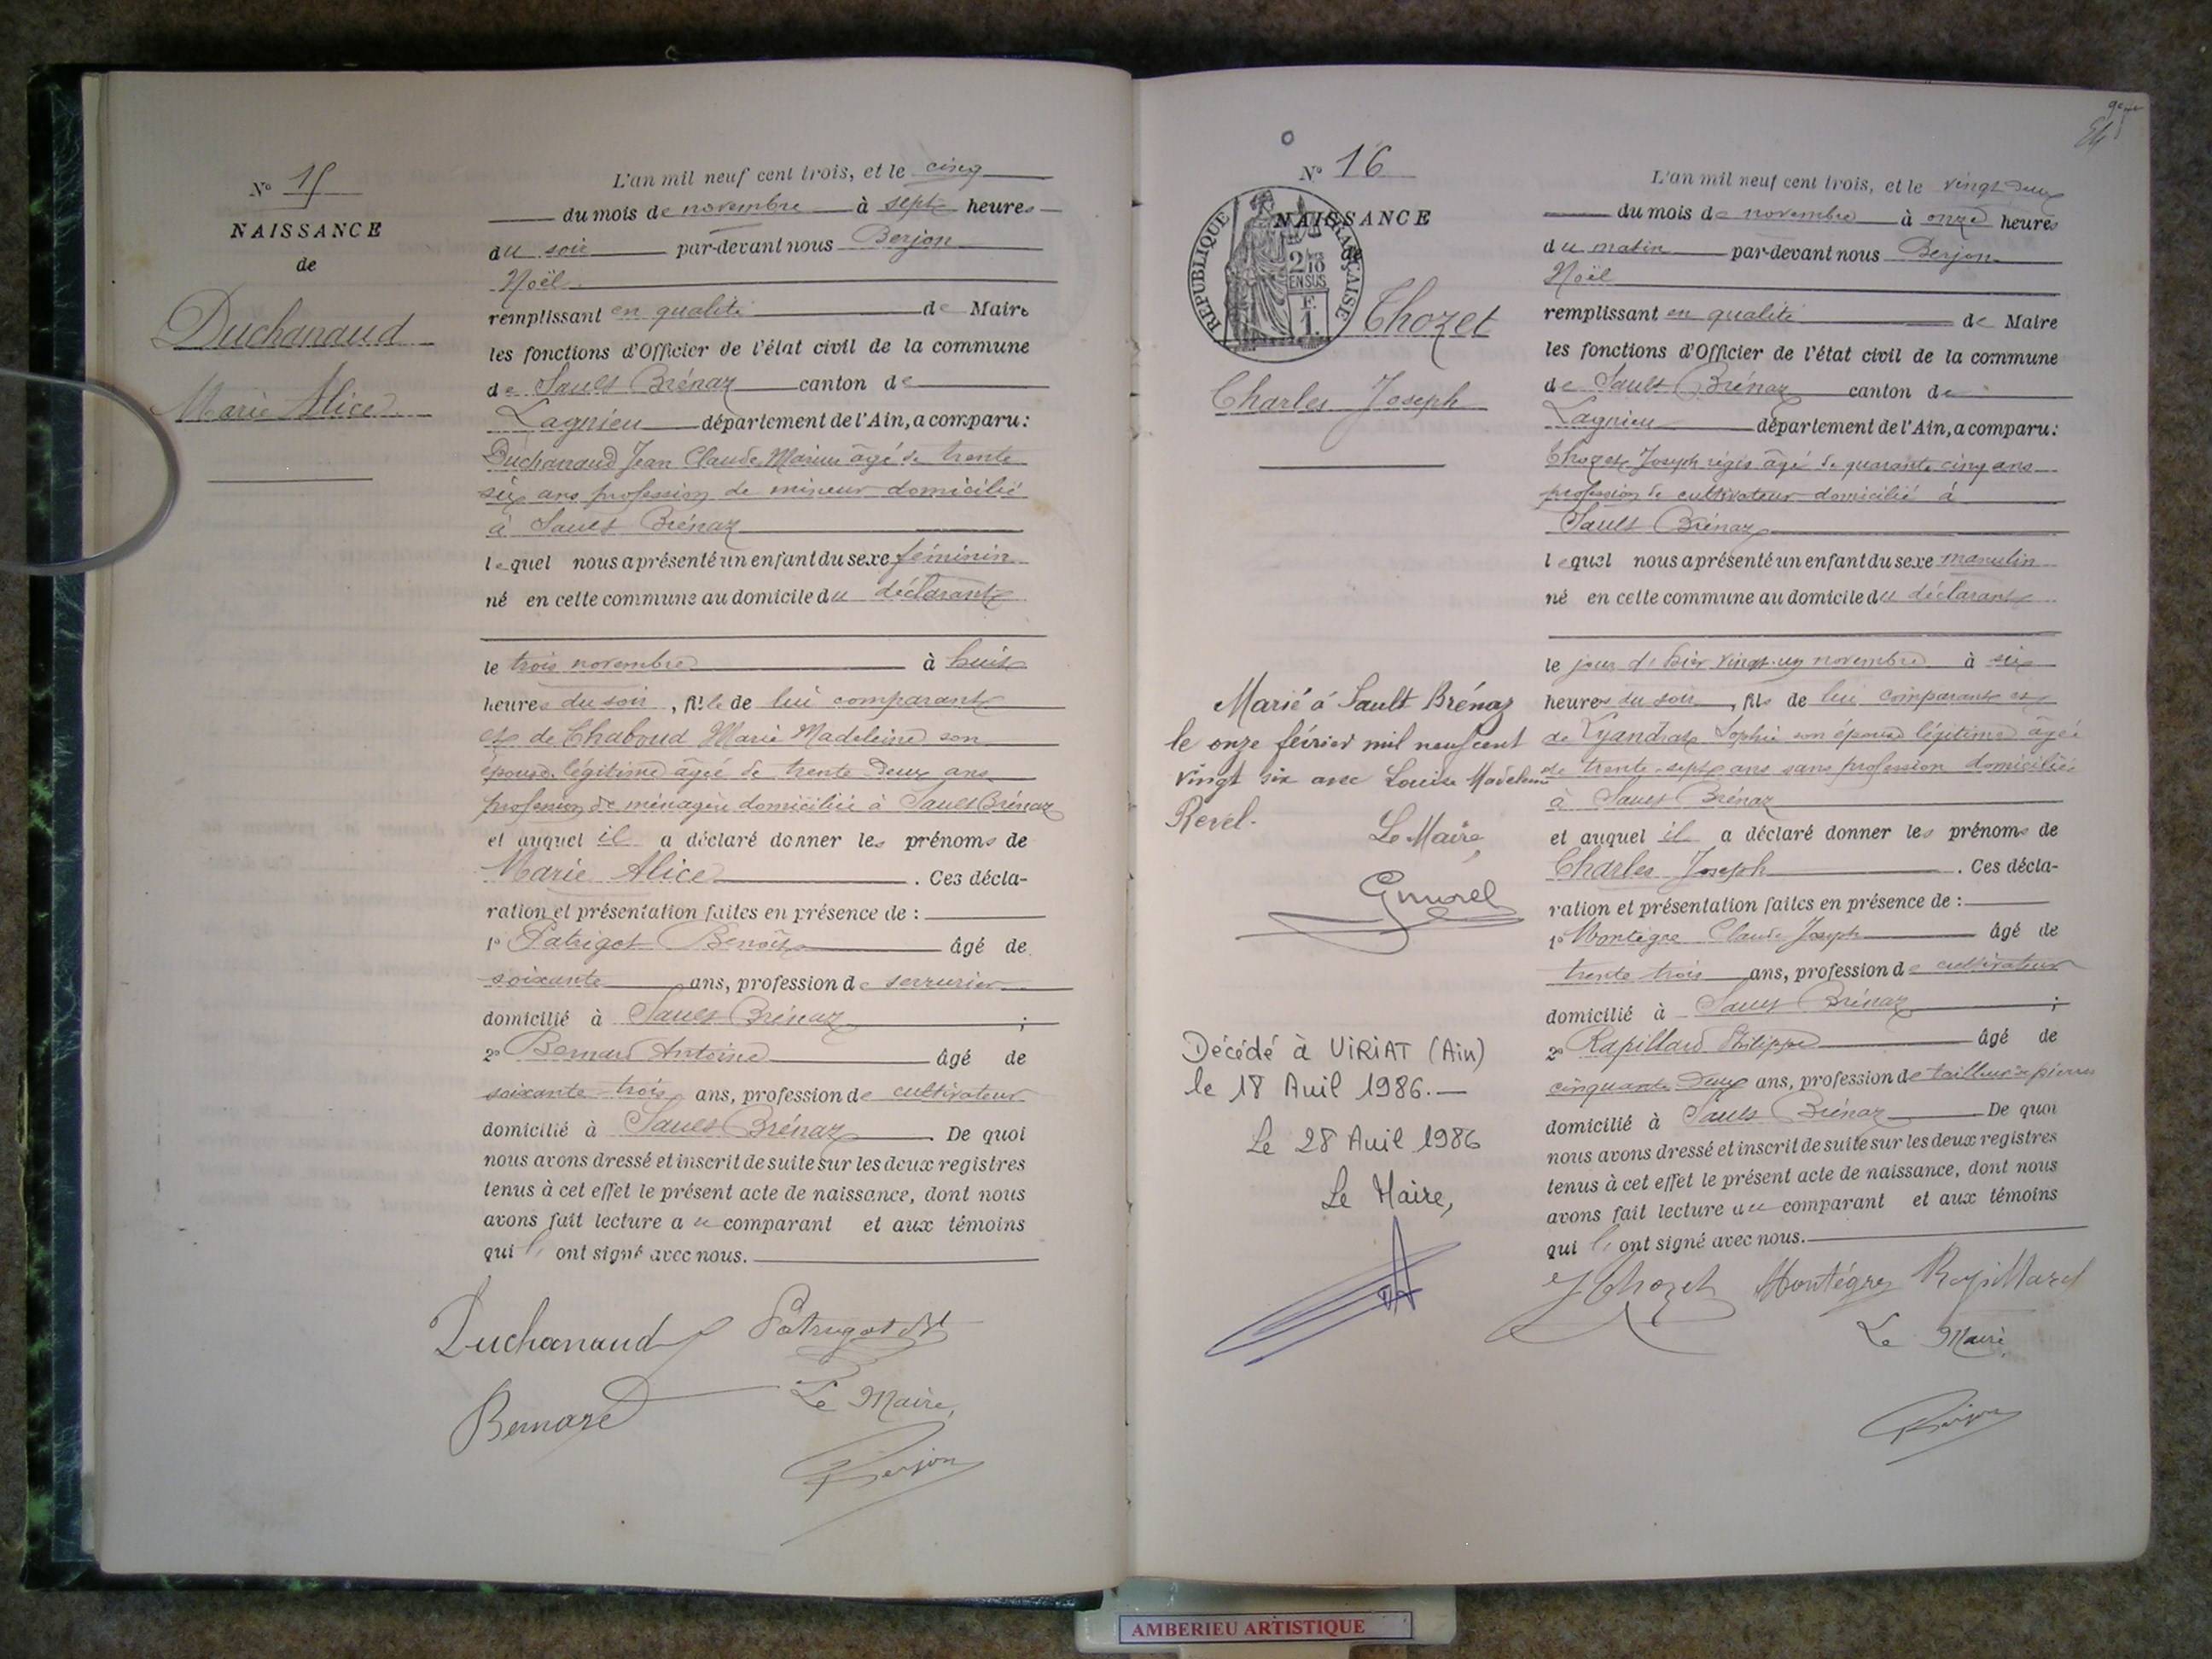 N° 15
NAISSANCE
de
Duchanaud
Marie Alice
L'an mil neuf cent trois, et le cinq
du mois de novembre à sept heures
du soir par-devant nous Berjon
Noël
remplissant en qualité de Maire
les fonctions d'Officier de l'état civil de la commune
de Sault Brénaz canton de
Lagnieu département de l'Ain, a comparu:
Duchanaud Jean Claude Marius âgé de trente
six ans profession de mineur domicilié
à Sault Brénaz
lequel nous a présenté un enfant du sexe féminin
né en cette commune au domicile du déclarant
le trois novembre à huit
heures du soir, fille de lui comparant
et de Chaboud Marie Madeleine son
épouse légitime âgée de trente deux ans
profession de ménagère domiciliée à Sault Brénaz
et auquel il a déclaré donner les prénoms de
Marie Alice. Ces décla-
ration et présentation faites en présence de :
1° Patrigot Benoît âgé de
soixante ans, profession de serrurier
domicilié à Sault Brénaz ;
2° Bernard Antoine âgé de
soixante-trois ans, profession de cultivateur
domicilié à Sault Brénaz. De quoi
nous avons dressé et inscrit de suite sur les deux registres
tenus à cet effet le présent acte de naissance, dont nous
avons fait lecture au comparant et aux témoins
qui ont signé avec nous.
Duchanaud Patrigot Bt
Bernard Le Maire,
Berjon
N° 16
NAISSANCE
de
REPUBLIQUE FRANÇAISE
2/10
EN SUS
F.
1.
Chozet
Charles Joseph
Marié à Sault Brénaz
le onze février mil neuf cent
vingt six avec Louise Madeleine
Revel.
Le Maire,
Décédé à VIRIAT (Ain)
le 18 Avril 1986.—
Le 28 Avril 1986
Le Maire,
L'an mil neuf cent trois, et le vingt deux
du mois de novembre à onze heures
du matin par-devant nous Berjon
Noël
remplissant en qualité de Maire
les fonctions d'Officier de l'état civil de la commune
de Sault Brénaz canton de
Lagnieu département de l'Ain, a comparu:
Chozet Joseph régis âgé de quarante cinq ans
profession de cultivateur domicilié à
Sault Brénaz
lequel nous a présenté un enfant du sexe masculin
né en cette commune au domicile du déclarant
le jour d'hier vingt-un novembre à six
heures du soir, fils de lui comparant et
de Lyandrat Sophie son épouse légitime âgée
de trente-sept ans sans profession domiciliée
à Sault Brénaz
et auquel il a déclaré donner les prénoms de
Charles Joseph. Ces décla-
ration et présentation faites en présence de :
1° Montégre Claude Joseph âgé de
trente trois ans, profession de cultivateur
domicilié à Sault Brénaz ;
2° Rapillard Philippe âgé de
cinquante deux ans, profession de tailleur de pierres
domicilié à Sault Brénaz De quoi
nous avons dressé et inscrit de suite sur les deux registres
tenus à cet effet le présent acte de naissance, dont nous
avons fait lecture au comparant et aux témoins
qui ont signé avec nous.
J Chozet Montégre Rapillard
Le Maire,
Berjon
AMBERIEU ARTISTIQUE